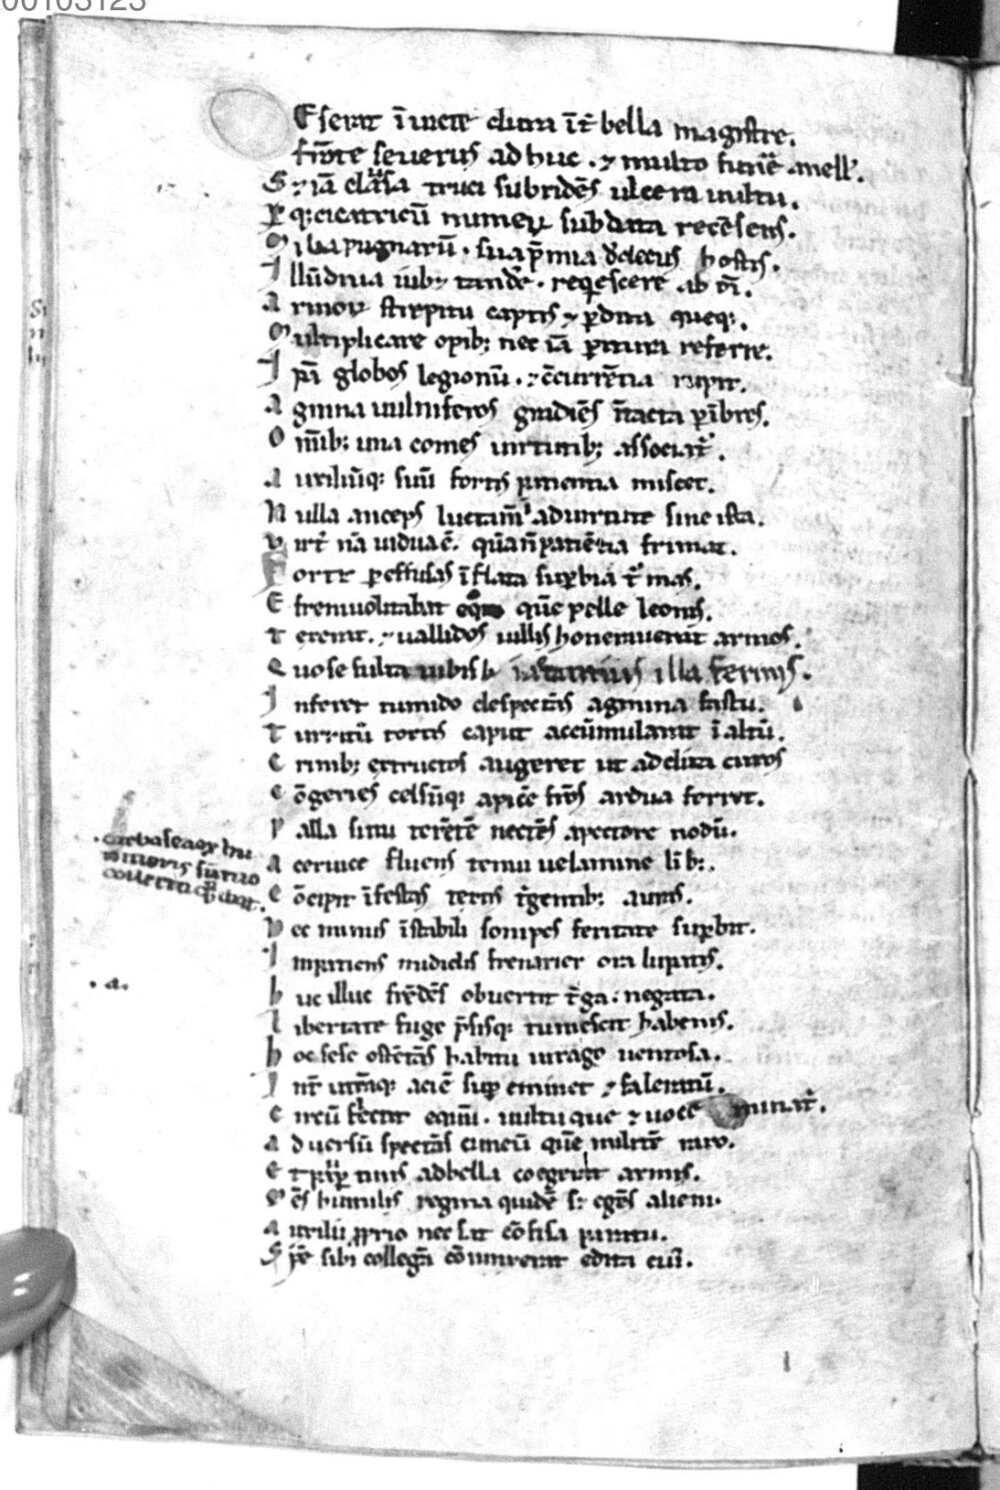 Eserat īuicte dura īt bella magistre.
frōte seuerus ad huc . ⁊ multo funēe .anell'.
S; iā clausa truci subridēs ulcera uultu.
P̱ q: cicatricū numeꝝ sudata recēsens.
Milia pugnarū . sua p̄mia dedecus hostis.
Illū diuia iub; tandē . req̇escere ab ōi.
Armoꝝ strepitu captis ⁊ p̱dita queq:.
Multiplicare opib; nec iā p̱itura referre.
Ipā globos legionū . ⁊ cōcurrētia rupit.
Agmina uulniferos gradiēs ītacta p̱ ībres.
Omīb; una comes uirtutib; associat᷑.
Auxiliūq: suū fortis patientia miscet.
Nulla anceps luctam̄ aduirtute sine ista.
Virt᷒ nā uidua ē. quā ñ patiētia firmat.
Forte p̱ effusas īflata sup̱bia t᷑mas.
Efreniuolitabat equo quē pelle leonis.
Texerat . ⁊ uallidos uillis honerauerat armos.
Quo se fulta iubis iactantius illa ferinis.
Inferret tumido despectās agmina fastu.
Turritū tortis caput accūmularat ī altū.
Crinib; extructos augeret ut addita cirros
Cōgeries celsūq: apicē frōs ardua ferret.
.carbasea ex hu
meris sūmo
collecta q̇ibat.
Palla sinu teretē nectēs apectore nodū.
A ceruice fluens tenui uelamine līb;.
Cōcipit īfestas textis t᷑gentib; auras.
Nec minus īstabili sonipes feritate sup̱bit.
Inpatiens madidis frenarier ora lupatis.
.a.
Huc illuc frēdēs obuertit t᷑ga : negata.
Libertate fuge p̄sisq: tumescit habenis.
Hoc sese ostētās habitu uirago uentosa.
Int᷑ utrāq: aciē sup̱ eminet ⁊ faleratū.
Circū flectit equum . uultuque ⁊ uoce minat᷑.
Aduersū spectās cuneū quē milite raro.
Et paup̱tinis adbella coegerat armis.
Mēs humilis regina quidē s; egēs alieni.
Auxilii p̱prio nec sat cōfisa paratu.
Spē sibi collegā cōiunxerat edita cui᷒.